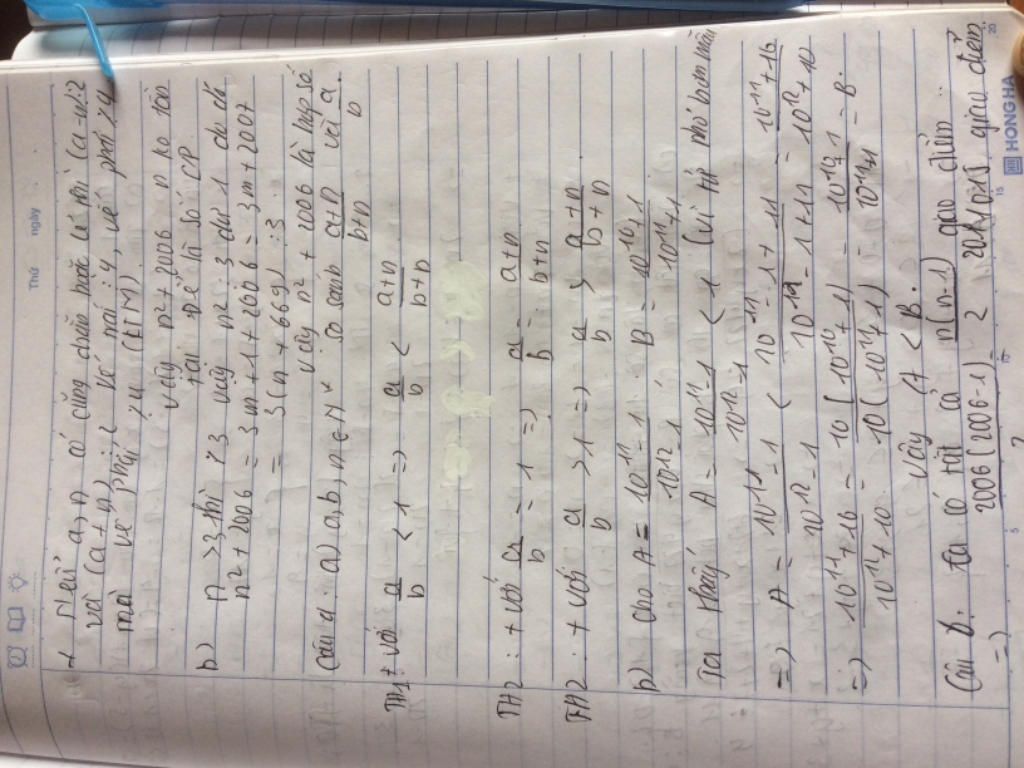 Thứ ngày
+ Nếu a, n có cùng chẵn hoặc lẻ thì (a-n):2
và (a+n):2 vế trái :4, vế phải :/4
mà vế phải :/4 (KTM)
vậy n² + 2006 n ko tồn
tại để là số CP
b) n > 3 thì :/3 vậy n² : 3 dư 1 do đó
n² + 2006 = 3m + 1 + 2006 = 3m + 2007
= 3(m + 669) : 3
vậy n² + 2006 là hợp số
Câu 4: a) a, b, n ∈ N* so sánh a+n/b+n và a/b
TH1: + với a/b < 1 => a/b < a+n/b+n
TH2: + với a/b = 1 => a/b = a+n/b+n
TH2: + với a/b > 1 => a/b > a+n/b+n
b) cho A = 10¹¹-1/10¹²-1 B = 10¹⁰+1/10¹¹+1
Ta thấy A = 10¹¹-1/10¹²-1 < 1 (vì tử nhỏ hơn mẫu
=> A = 10¹¹-1/10¹²-1 < 10¹¹-1+11/10¹²-1+11 = 10¹¹+10/10¹²+10
=> 10¹¹+10/10¹²+10 = 10(10¹⁰+1)/10(10¹¹+1) = 10¹⁰+1/10¹¹+1 = B.
Vậy A < B.
Câu 6. ta có tất cả n(n-1) giao điểm
=> 2006(2006-1)/2 = 2011015 giao điểm
HONG HA
5 10 15 20